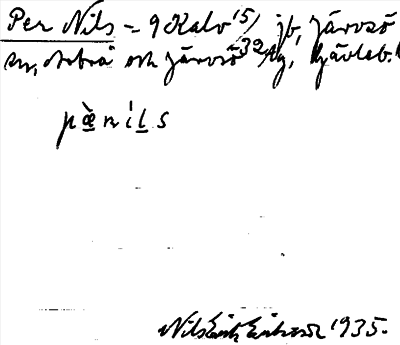 Per Nils = 9 Kalv 15/32 jb, Järvsö
sn, Arbrå och Järvsö tg, Gävleb. l
pæ̀nils
Nils Erik Eriksson 1935.